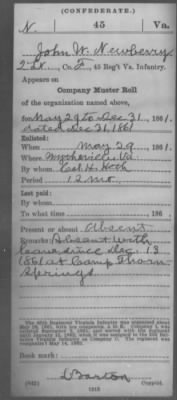 (CONFEDERATE.)
N. 45 Va.
John W. Newberry
2 Lt., Co. F, 45 Reg't Va. Infantry.
Appears on
Company Muster Roll
of the organization named above,
for May 29 to Dec 31, 1861.
dated Dec 31, 1861
Enlisted:
When May 29, 1861.
Where Wytheville Va
By whom Col. H. Heth
Period 12 mo.
Last paid:
By whom
To what time , 186 .
Present or absent Absent
Remarks: Absent with
leave since Dec. 13
1861 at Camp Thorn
Springs
The 45th Regiment Virginia Infantry was organized about
Book mark:
(642) Copyist.